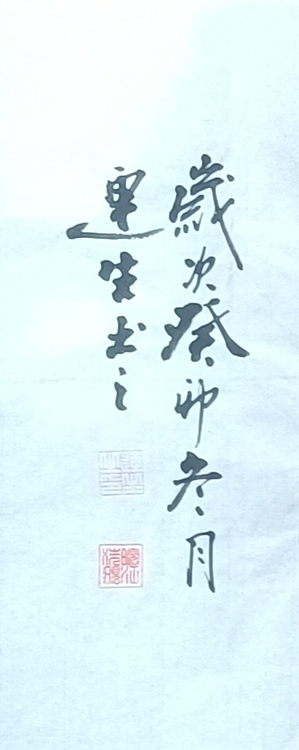 歲次癸卯冬月
運生书之